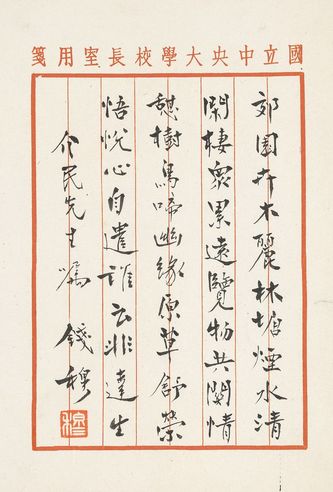 國立中央大學校長室用箋
郊園卉木麗林塘煙水清
閑棲眾累遠覽物共關情
憩樹鳥啼幽緣原草舒榮
悟悅心自遣誰云非達生
介民先生囑 錢穆
穆